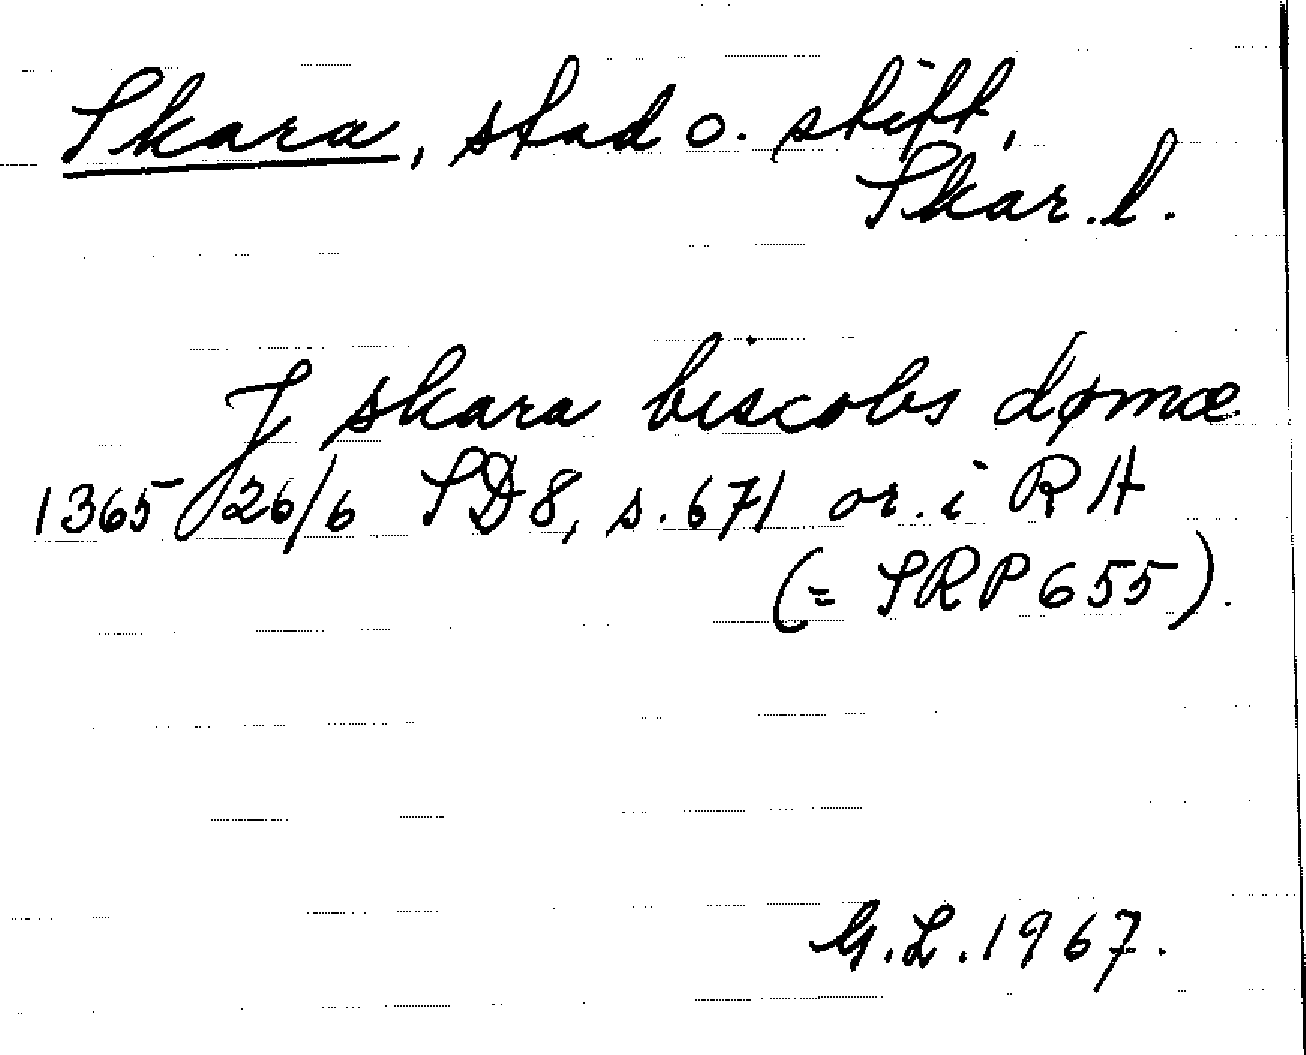 Skara, stad o. stift,
Skar. l.
J skara biscobs dømæ
1365 26/6 SD8, s. 671 or. i RA
(= SRP 655).
G. L. 1967.